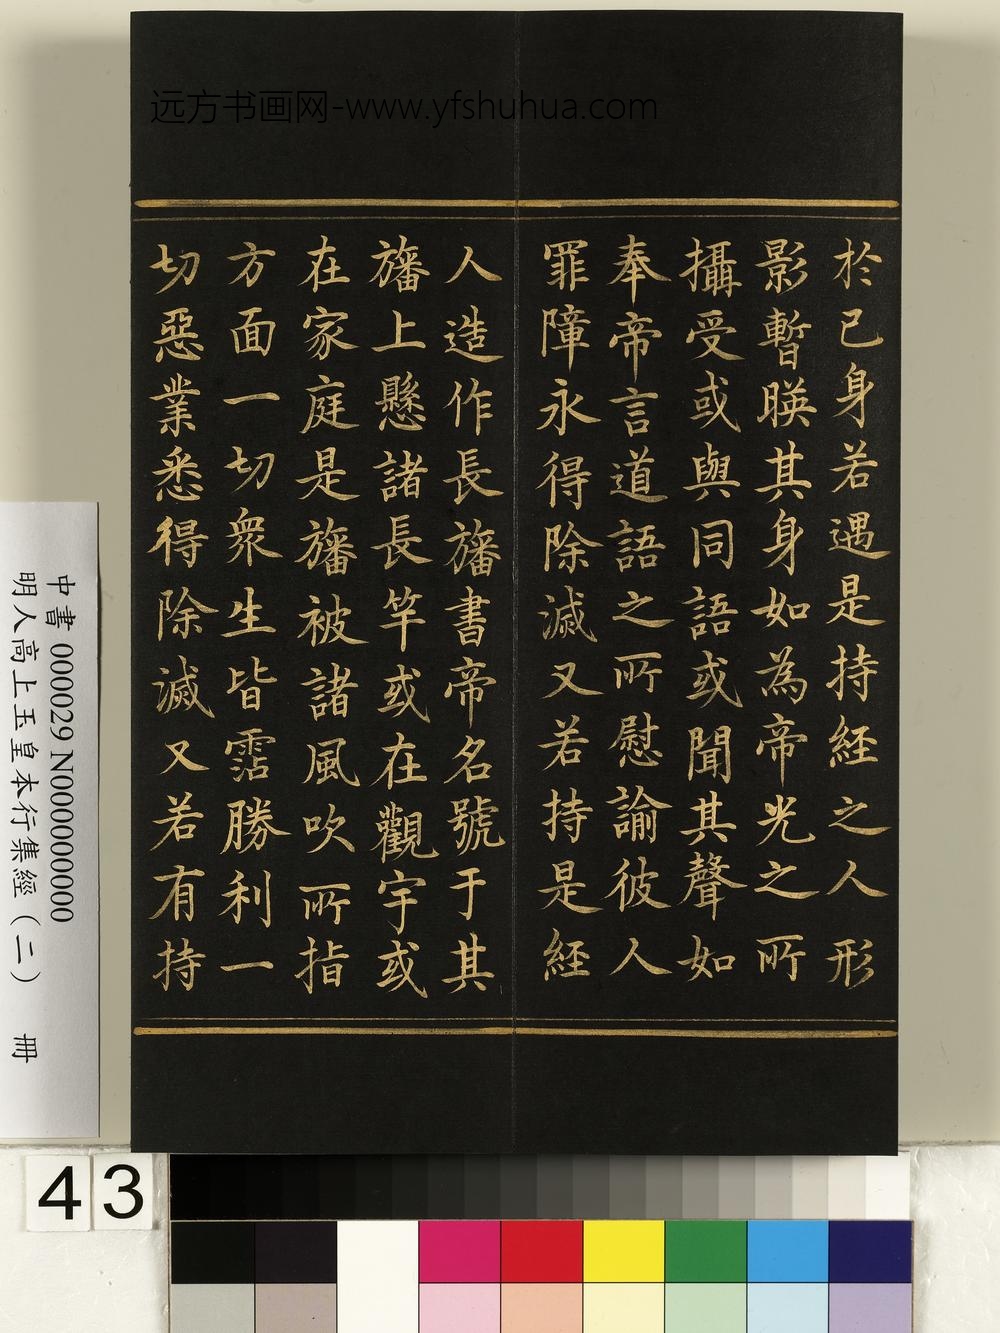 远方书画网-www.yfshuhua.com
於己身若遇是持經之人形
影暫暎其身如為帝光之所
攝受或與同語或聞其聲如
奉帝言道語之所慰諭彼人
罪障永得除滅又若持是經
人造作長旛書帝名號于其
旛上懸諸長竿或在觀宇或
在家庭是旛被諸風吹所指
方面一切衆生皆霑勝利一
切惡業悉得除滅又若有持
中書 000029 N000000000
明人高上玉皇本行集經（二） 冊
43